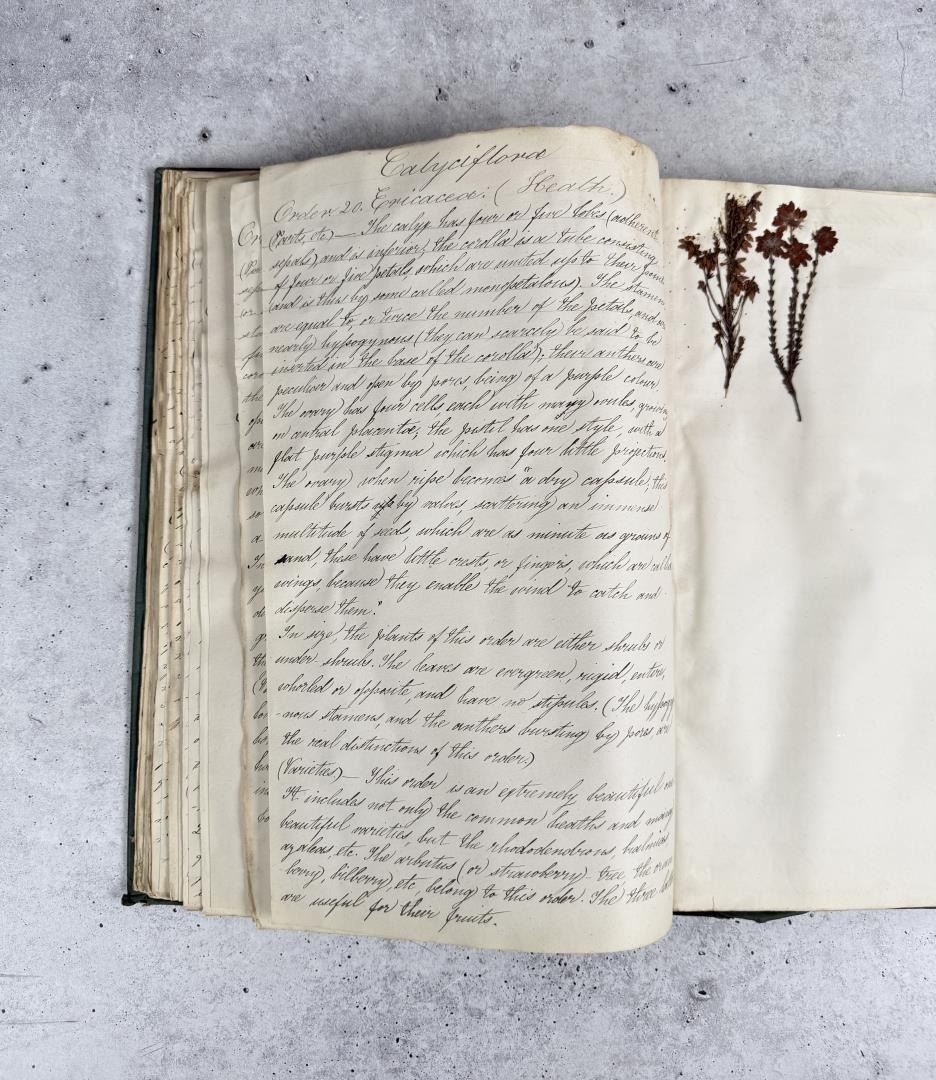 Calyciflora
Order 20. Ericaceæ: (Heath.)
(Parts, etc) — The calyx has four or five lobes (adherent
sepals), and is inferior; the corolla is a tube consisting
of four or five petals, which are united up to their
and is thus by some called monopetalous). The stamens
are equal to or twice the number of the petals, and
nearly hypogynous (they can scarcely be said to be
inserted in the base of the corolla); their anthers are
peculiar and open by pores, being of a purple colour.
The ovary has four cells, each with many ovules, growing
on central placenta; the pistil has one style, with a
flat purple stigma which has four little projections
The ovary when ripe becomes "a dry capsule; this
capsule bursts by valves, scattering an immense
multitude of seeds, which are as minute as grains of
sand, these have little crests, or fingers, which are
wings, because they enable the wind to catch and
disperse them."
In size, the plants of this order are either shrubs or
under shrubs. The leaves are evergreen, rigid, entire,
whorled or opposite, and have no stipules. (The hypogy
-nous stamens, and the anthers bursting by pores, are
the real distinctions of this order.)
(Varieties) — This order is an extremely beautiful
It includes not only the common heaths and many
beautiful varieties, but the rhododendrons, kalmias
azaleas, etc. The arbutus (or) strawberry-tree, the
berry, bilberry, etc, belong to this order. The three
are useful for their fruits.